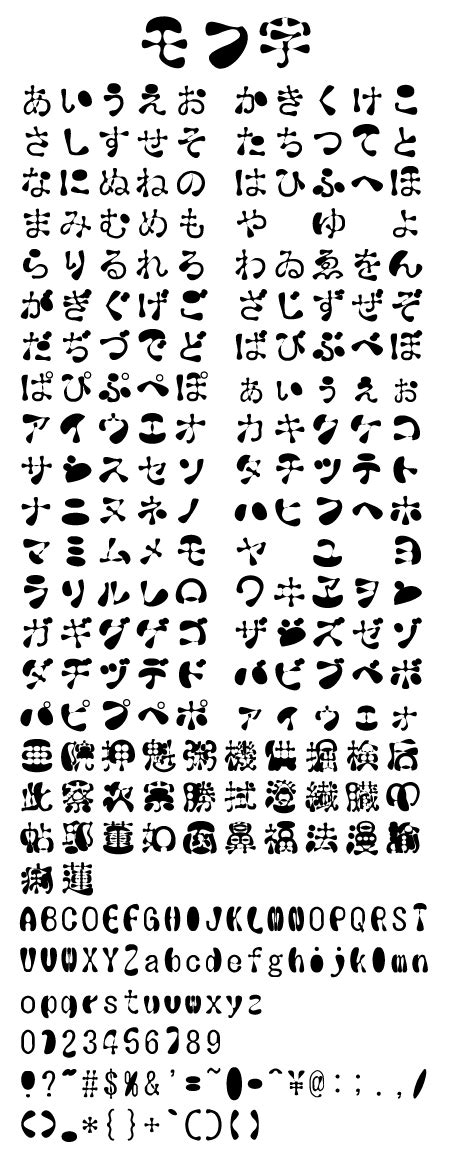 モフ字
あいうえお かきくけこ
さしすせそ たちつてと
なにぬねの はひふへほ
まみむめも や ゆ よ
らりるれろ わゐゑをん
がぎぐげご ざじずぜぞ
だぢづでど ばびぶべぼ
ぱぴぷぺぽ ぁぃぅぇぉ
アイウエオ カキクケコ
サシスセソ タチツテト
ナニヌネノ ハヒフヘホ
マミムメモ ヤ ユ ヨ
ラリルレロ ワヰヱヲン
ガギグゲゴ ザジズゼゾ
ダヂヅデド バビブベボ
パピプペポ ァィゥェォ
亜院押魁粥機供掘検后
此察次宗勝拭澄繊臓
帖邸董如函鼻福法漫輸
痢蓮
ABCDEFGHIJKLMNOPQRST
UVWXYZabcdefghijklmn
opqrstuvwxyz
0123456789
!?"#$%&'=~|-^¥@:;.,/
<>_*{}+`[]()